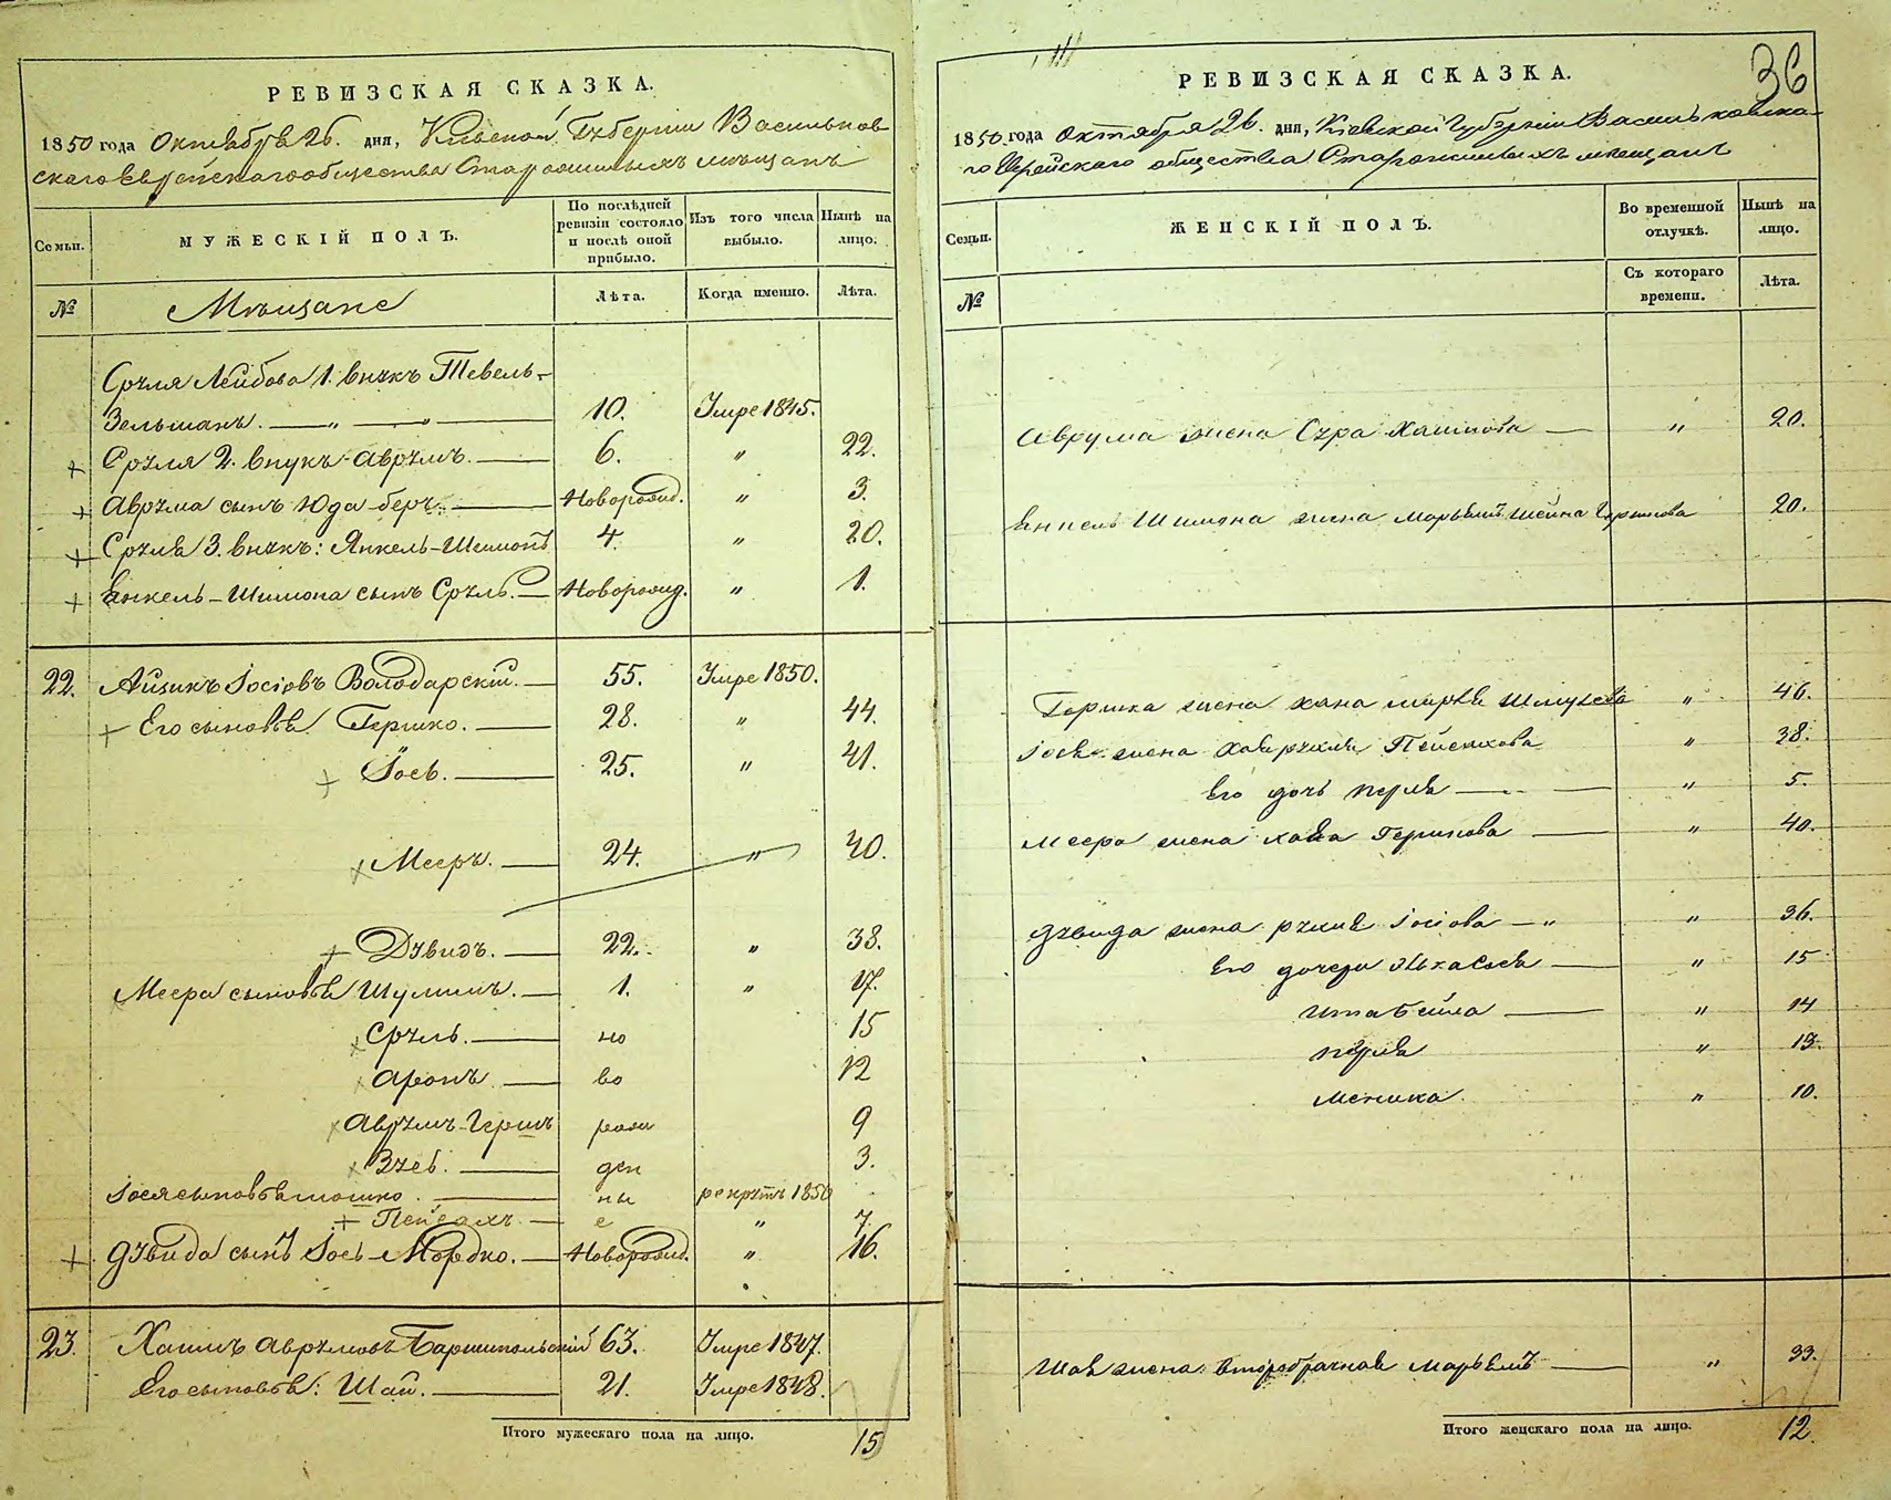 РЕВИЗСКАЯ СКАЗКА.
1850 года Октября 26. дня, Кіевской Губерніи Васильков
скаго Еврейскаго общества Старожилыхъ мѣщанъ
Семьи.
МУЖЕСКІЙ ПОЛЪ.
По послѣдней ревизіи состояло и послѣ оной прибыло.
Изъ того числа выбыло.
Нынѣ на лицо.
№
Мѣщане
Лѣта.
Когда именно.
Лѣта.
Сруля Лейбова 1. внукъ Тевель-
Зельманъ. — „ — „ — 10. Умре 1845.
+ Сруля 2. внукъ Аврумъ. — 6. „ 22.
+ Аврума сынъ Юда-беръ. — Новорожд. „ 3.
+ Сруля 3. внукъ: Янкель-Шимонъ 4. „ 20.
+ Янкель-Шимона сынъ Сруль. — Новорожд. „ 1.
22. Айзикъ Іосіовъ Володарскій. — 55. Умре 1850.
+ Его сыновья Гершко. — 28. „ 44.
+ Іось. — 25. „ 41.
x Мееръ. — 24. „ 40.
+ Дувидъ. — 22. „ 38.
x Меера сыновья Шулимъ. — 1. „ 17.
x Сруль. — но 15
x Аронъ. — во 12
x Аврумъ-Гершъ рож 9
x Зуеб. — ден 3.
Іося сыновья мошко. — ны рекрутъ 1850
+ Пейсахъ. — е „ 7.
+ Дувида сынъ Іось-Мордко. — Новорожд. „ 16.
23. Хаимъ Аврумовъ Баришпольскій 63. Умре 1847.
Его сыновья: Шая. — 21. Умре 1848.
Итого мужескаго пола на лицо. 15
36
РЕВИЗСКАЯ СКАЗКА.
1850 года Октября 26. дня, Кіевской Губерніи Васильковска-
го Еврейскаго общества Старожилыхъ мѣщанъ
Семьи.
ЖЕНСКІЙ ПОЛЪ.
Во временной отлучкѣ.
Нынѣ на лицо.
№
Съ котораго времени.
Лѣта.
Аврума жена Сура Хаимова — „ 20.
Янкель Шимона жена Марьямъ Шейна Гершкова 20.
Гершка жена хана мирля Шмулева „ 46.
Іося жена Хая рухля Пейсахова „ 38.
Его дочь перля — „ 5.
Меера жена хая Гершкова — „ 40.
Дувида жена рухля Іосіова — „ „ 36.
Его дочери — „ 15
Ита бейла — „ 14
перля „ 13.
меника „ 10.
Шая жена второбрачная Марьямъ — „ 33.
Итого женскаго пола на лицо. 12